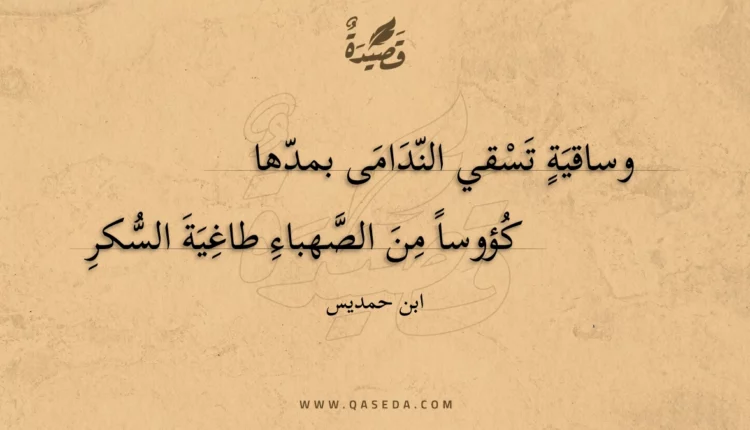 قَصِيدَةٌ
وساقيَةٍ تَسْقي النّدَامَى بمدّها
كُؤوساً مِنَ الصَّهباءِ طاغِيَةَ السُّكرِ
ابن حمديس
WWW.QASEDA.COM